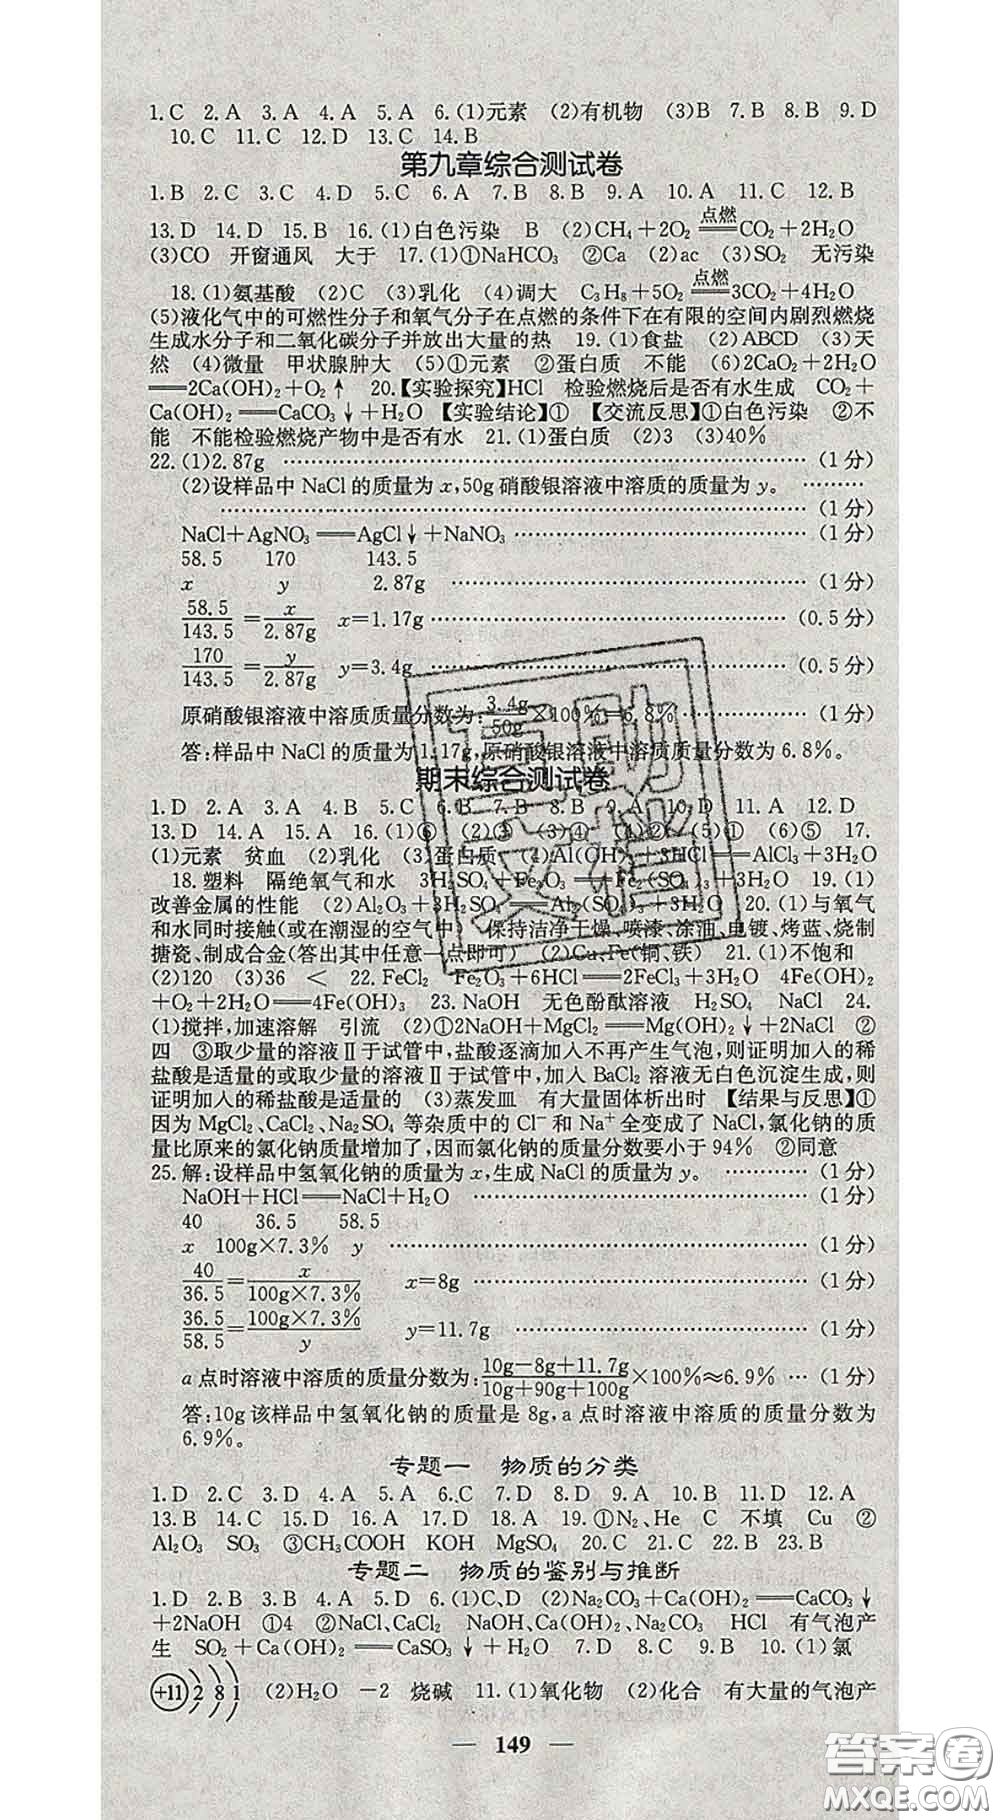 1.C 2.A 3.A 4.A 5.A 6.(1)元素 (2)有机物 (3)B 7.B 8.B 9.D
10.C 11.C 12.D 13.C 14.B
第九章综合测试卷
1.B 2.C 3.C 4.D 5.C 6.A 7.B 8.B 9.A 10.A 11.C 12.B
13.D 14.D 15.B 16.(1)白色污染 B (2)CH₄+2O₂ 点燃 CO₂+2H₂O
(3)CO 开窗通风 大于 17.(1)①NaHCO₃ ②Ca (2)ac (3)SO₂ 无污染
18.(1)氨基酸 (2)C (3)乳化 (4)调大 C₃H₈+5O₂ 点燃 3CO₂+4H₂O
(5)液化气中的可燃性分子和氧气分子在点燃的条件下在有限的空间内剧烈燃烧
生成水分子和二氧化碳分子并放出大量的热 19.(1)食盐 (2)ABCD (3)天
然 (4)微量 甲状腺肿大 (5)①元素 ②蛋白质 不能 (6)2CaO₂+2H₂O
══2Ca(OH)₂+O₂↑ 20.【实验探究】HCl 检验燃烧后是否有水生成 CO₂+
Ca(OH)₂══CaCO₃↓+H₂O 【实验结论】① 【交流反思】①白色污染 ②不
能 不能检验燃烧产物中是否有水 21.(1)蛋白质 (2)3 (3)40%
22.(1)2.87g ……(1分)
(2)设样品中NaCl的质量为x,50g硝酸银溶液中溶质的质量为y。……
……(1分)
NaCl+AgNO₃══AgCl↓+NaNO₃……(1分)
58.5 170 143.5
x y 2.87g ……(1分)
58.5/143.5=x/2.87g x=1.17g……(0.5分)
170/143.5=y/2.87g y=3.4g……(0.5分)
原硝酸银溶液中溶质质量分数为:3.4g/50g×100%=6.8%……(1分)
答:样品中NaCl的质量为1.17g,原硝酸银溶液中溶质质量分数为6.8%。
期末综合测试卷
1.D 2.A 3.A 4.B 5.C 6.B 7.B 8.B 9.A 10.D 11.A 12.D
13.D 14.A 15.A 16.(1)⑥ (2)③ (3)④ (4)② (5)① (6)⑤ 17.
(1)元素 贫血 (2)乳化 (3)蛋白质 (4)Al(OH)₃+3HCl══AlCl₃+3H₂O
18.塑料 隔绝氧气和水 3H₂SO₄+Fe₂O₃══Fe₂(SO₄)₃+3H₂O 19.(1)
改善金属的性能 (2)Al₂O₃+3H₂SO₄══Al₂(SO₄)₃+3H₂O 20.(1)与氧气
和水同时接触(或在潮湿的空气中) 保持洁净干燥、喷漆、涂油、电镀、烤蓝、烧制
搪瓷、制成合金(答出其中任意一点即可) (2)Cu、Fe(铜、铁) 21.(1)不饱和
(2)120 (3)36 < 22.FeCl₂ Fe₂O₃+6HCl══2FeCl₃+3H₂O 4Fe(OH)₂
+O₂+2H₂O══4Fe(OH)₃ 23.NaOH 无色酚酞溶液 H₂SO₄ NaCl 24.
(1)搅拌,加速溶解 引流 (2)①2NaOH+MgCl₂══Mg(OH)₂↓+2NaCl ②
四 ③取少量的溶液Ⅱ于试管中,盐酸逐滴加入不再产生气泡,则证明加入的稀
盐酸是适量的或取少量的溶液Ⅱ于试管中,加入BaCl₂溶液无白色沉淀生成,则
证明加入的稀盐酸是适量的 (3)蒸发皿 有大量固体析出时 【结果与反思】①
因为MgCl₂、CaCl₂、Na₂SO₄等杂质中的Cl⁻和Na⁺全变成了NaCl,氯化钠的质
量比原来的氯化钠质量增加了,因而氯化钠的质量分数要小于94% ②同意
25.解:设样品中氢氧化钠的质量为x,生成NaCl的质量为y。……(1分)
NaOH+HCl══NaCl+H₂O ……(1分)
40 36.5 58.5
x 100g×7.3% y ……(1分)
40/36.5=x/100g×7.3% x=8g ……(1分)
36.5/58.5=100g×7.3%/y y=11.7g ……(1分)
a点时溶液中溶质的质量分数为:10g-8g+11.7g/10g+90g+100g×100%≈6.9% ……(1分)
答:10g该样品中氢氧化钠的质量是8g,a点时溶液中溶质的质量分数为
6.9%。
专题一 物质的分类
1.D 2.C 3.D 4.A 5.A 6.C 7.D 8.D 9.A 10.B 11.D 12.A
13.B 14.C 15.D 16.A 17.D 18.A 19.①N₂、He C 不填 Cu ②
Al₂O₃ SO₃ ③CH₃COOH KOH MgSO₄ 20.C 21.C 22.B 23.B
专题二 物质的鉴别与推断
1.D 2.B 3.B 4.A 5.D 6.(1)C、D (2)Na₂CO₃+Ca(OH)₂══CaCO₃↓
+2NaOH ①4 ②NaCl、CaCl₂ NaOH、Ca(OH)₂、Na₂CO₃ HCl 有气泡产
生 SO₂+Ca(OH)₂══CaSO₃↓+H₂O 7.D 8.C 9.B 10.(1)氯
+11 2 8 1 (2)H₂O -2 烧碱 11.(1)氧化物 (2)化合 有大量的气泡产
149
答案圈
MXQE.COM